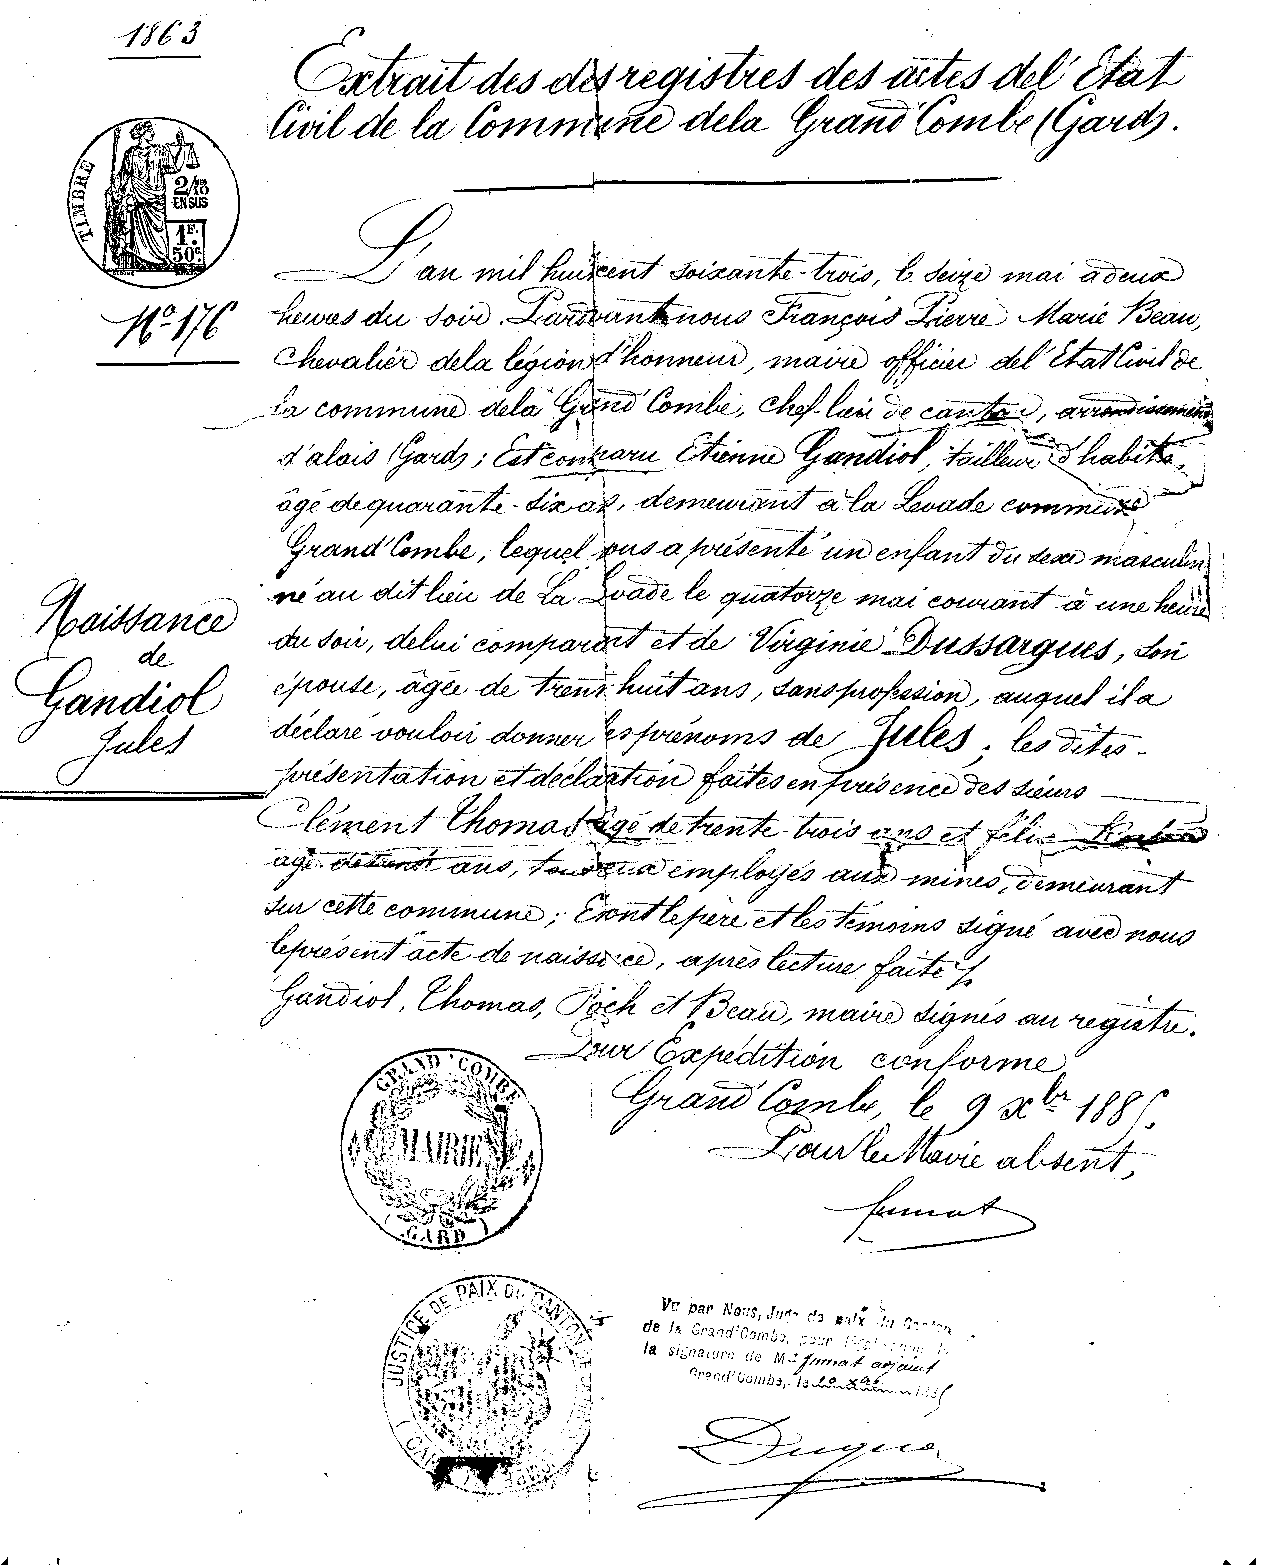 1863
Extrait des des registres des actes del'Etat
Civil de la Commune dela Grand'Combe (Gard).
TIMBRE
2/10
EN SUS
1F.
50c.
No 176
L'an mil huit cent soixante-trois, le seize mai à deux
heures du soir. Pardevant nous François Pierre Marie Beau,
Chevalier dela légion d'honneur, maire officier del'Etat Civil de
la commune dela Grand'Combe, chef-lieu de canton, arrondissement
d'alais (Gard); Est comparu Etienne Gandiol, tailleur d'habits,
âgé de quarante-six ans, demeurant à la Levade commune
Grand'Combe, lequel nous a présenté un enfant du sexe masculin
né au dit lieu de La Levade le quatorze mai courant à une heure
du soir, delui comparant et de Virginie Dussargues, son
épouse, âgée de trente huit ans, sans profession, auquel il a
déclaré vouloir donner les prénoms de Jules; les dites
présentation et déclaration faites en présence des sieurs
Clément Thomas âgé de trente trois ans et félix
âgé de ans, tous deux employés aux mines, demeurant
sur cette commune; Et ont le père et les témoins signé avec nous
le présent acte de naissance, après lecture faite
Gandiol, Thomas, Poch et Beau, maire signés au registre.
Naissance
de
Gandiol
Jules
Pour Expédition conforme
Grand'Combe, le 9 Xbre 1885.
Pour le Maire absent,
fumat
GRAND'COMBE
MAIRIE
(GARD)
JUSTICE DE PAIX DU CANTON DE
Vu par Nous, Juge de paix du Canton
de la Grand'Combe, pour
la signature de Mr fumat adjoint
Grand'Combe, le 10 Xbre 1885
Dugua